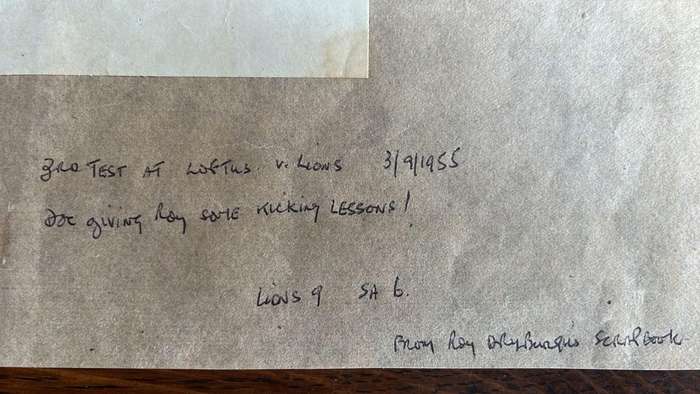 3RD TEST AT LOFTUS v. LIONS 3/9/1955
Doc giving Roy SOME KICKING LESSONS!
LIONS 9 SA 6.
FROM Roy DRYBURGH'S SCRAPBOOK